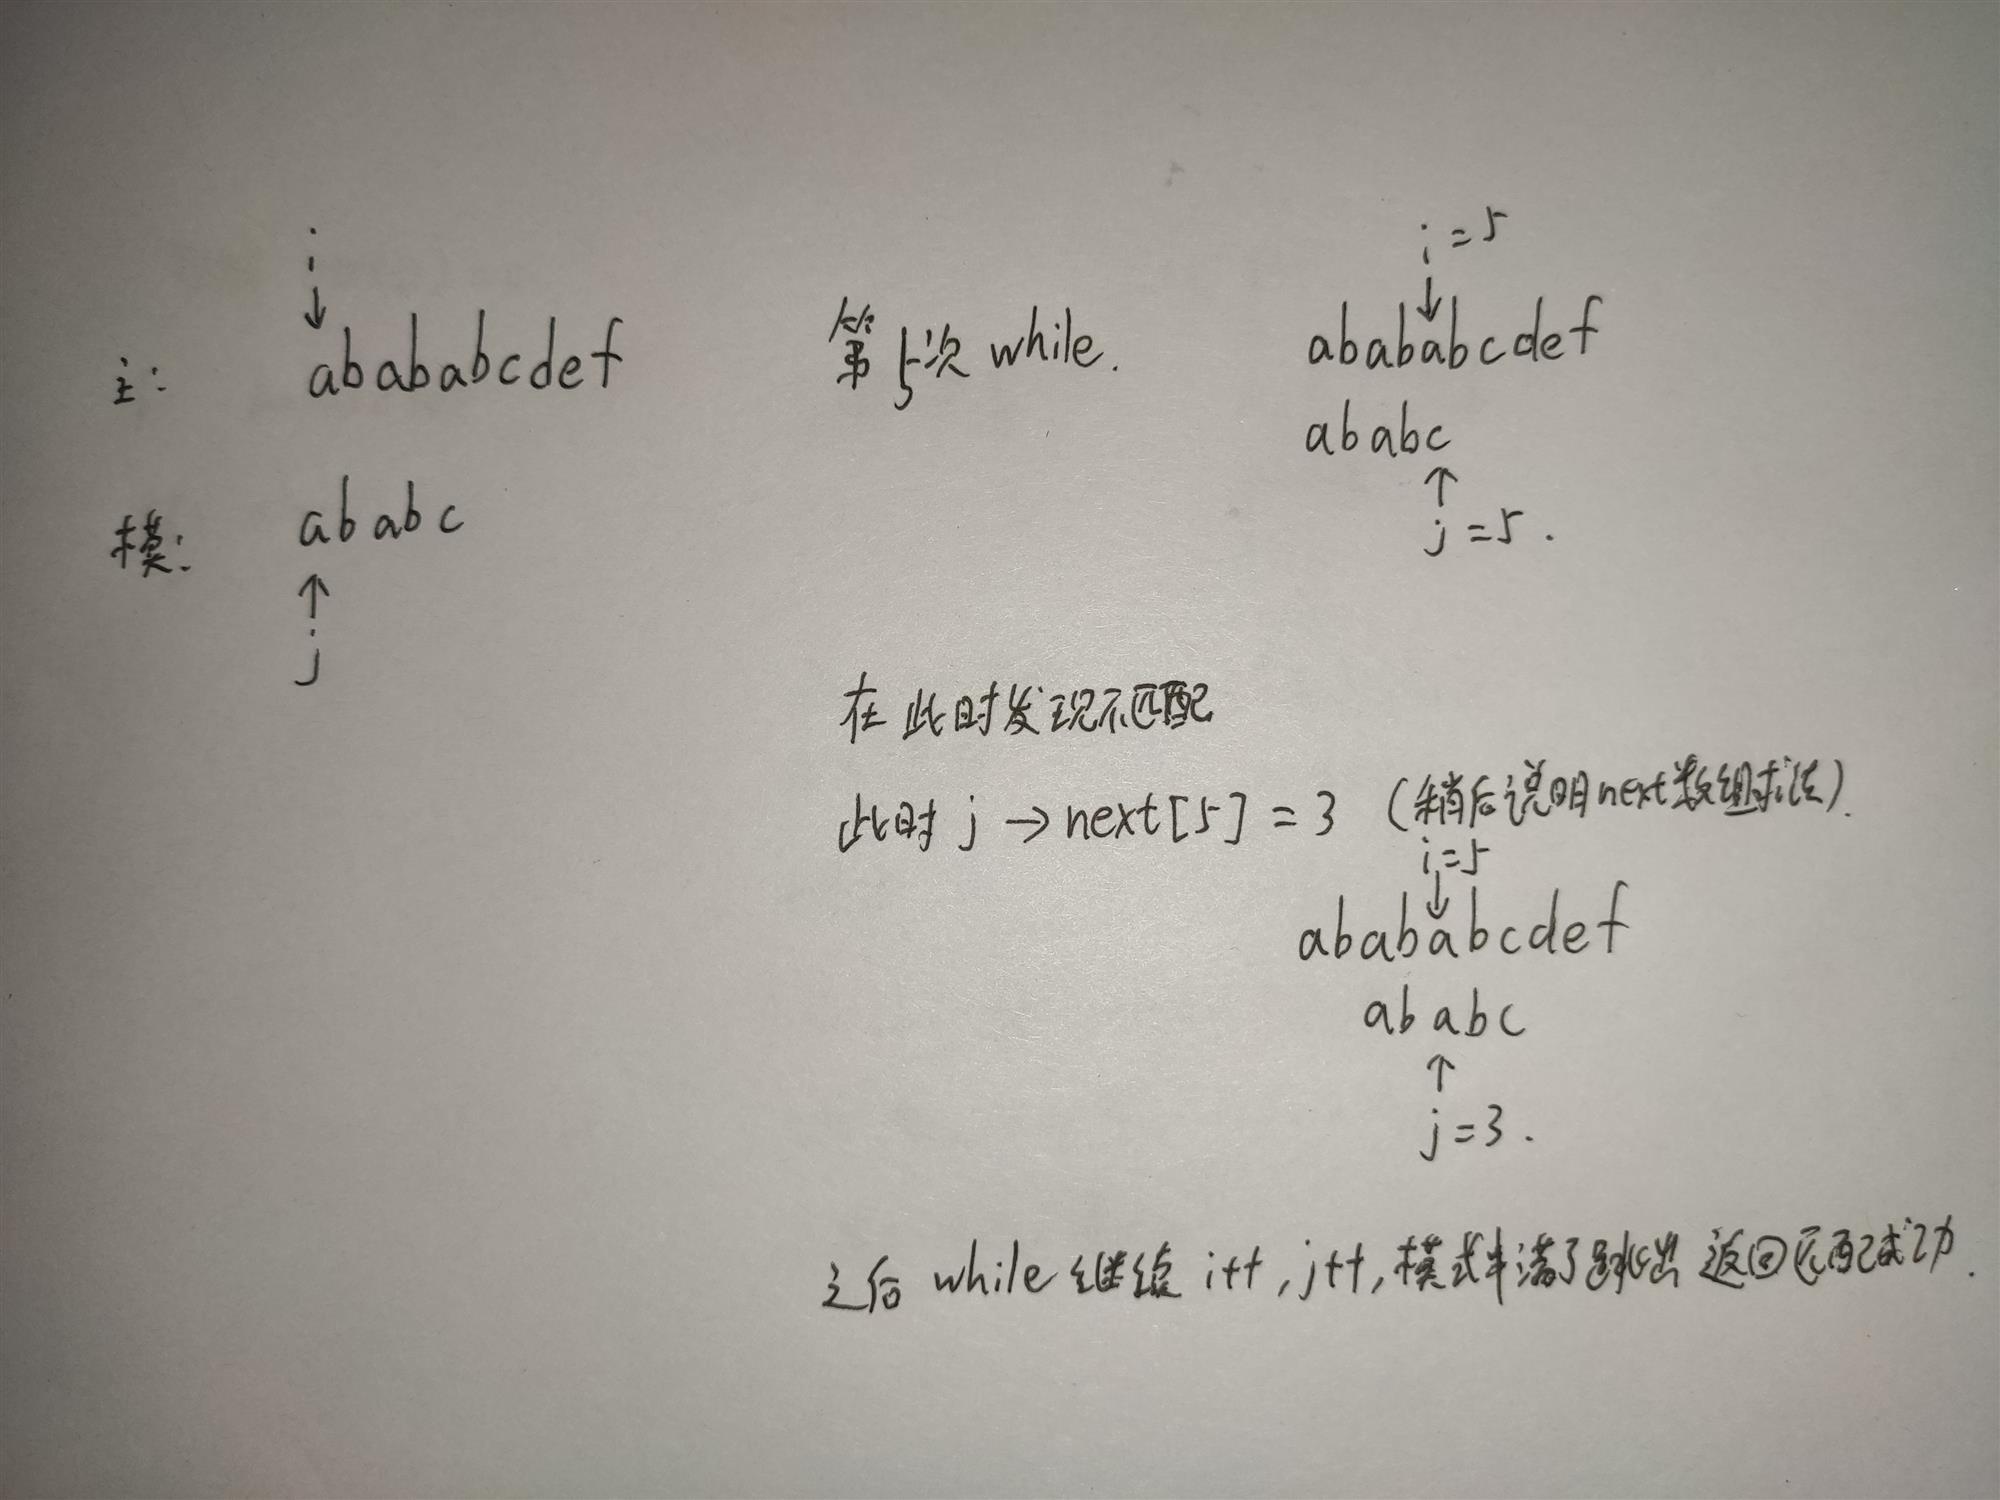 i
↓
主: abababcdef
模: ababc
↑
j
第5次 while.
i=5
↓
abababcdef
ababc
↑
j=5.
在此时发现不匹配
此时 j → next[5] = 3 (稍后说明next数组求法).
i=5
↓
abababcdef
ababc
↑
j=3.
之后 while 继续 i++, j++, 模式串满了跳出 返回匹配成功.